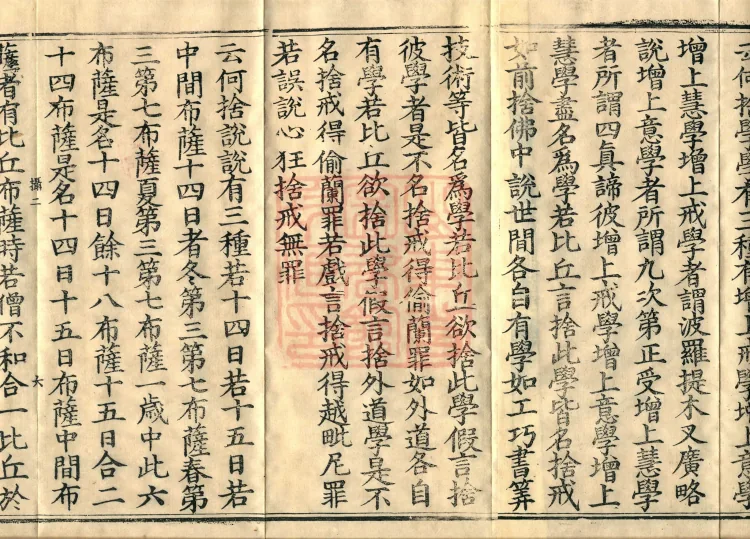 云何捨學學有三種有增上戒學增上意學
增上慧學增上戒學者謂波羅提木叉廣略
說增上意學者所謂九次第正受增上慧學
者所謂四真諦彼增上戒學增上意學增上
慧學盡名為學若比丘言捨此學皆名捨戒
如前捨佛中說世間各自有學如工巧書筭
技術等皆名為學若比丘欲捨此學假言捨
彼學者是不名捨戒得偷蘭罪如外道各自
有學若比丘欲捨此學假言捨外道學是不
名捨戒得偷蘭罪若戲言捨戒得越毗尼罪
若誤說心狂捨戒無罪
云何捨說說有三種若十四日若十五日若
中間布薩十四日者冬第三第七布薩春第
三第七布薩夏第三第七布薩一歲中此六
布薩是名十四日餘十八布薩十五日合二
十四布薩是名十四日十五日布薩中間布
攝二 六
薩者有比丘布薩時若僧不和合一比丘於